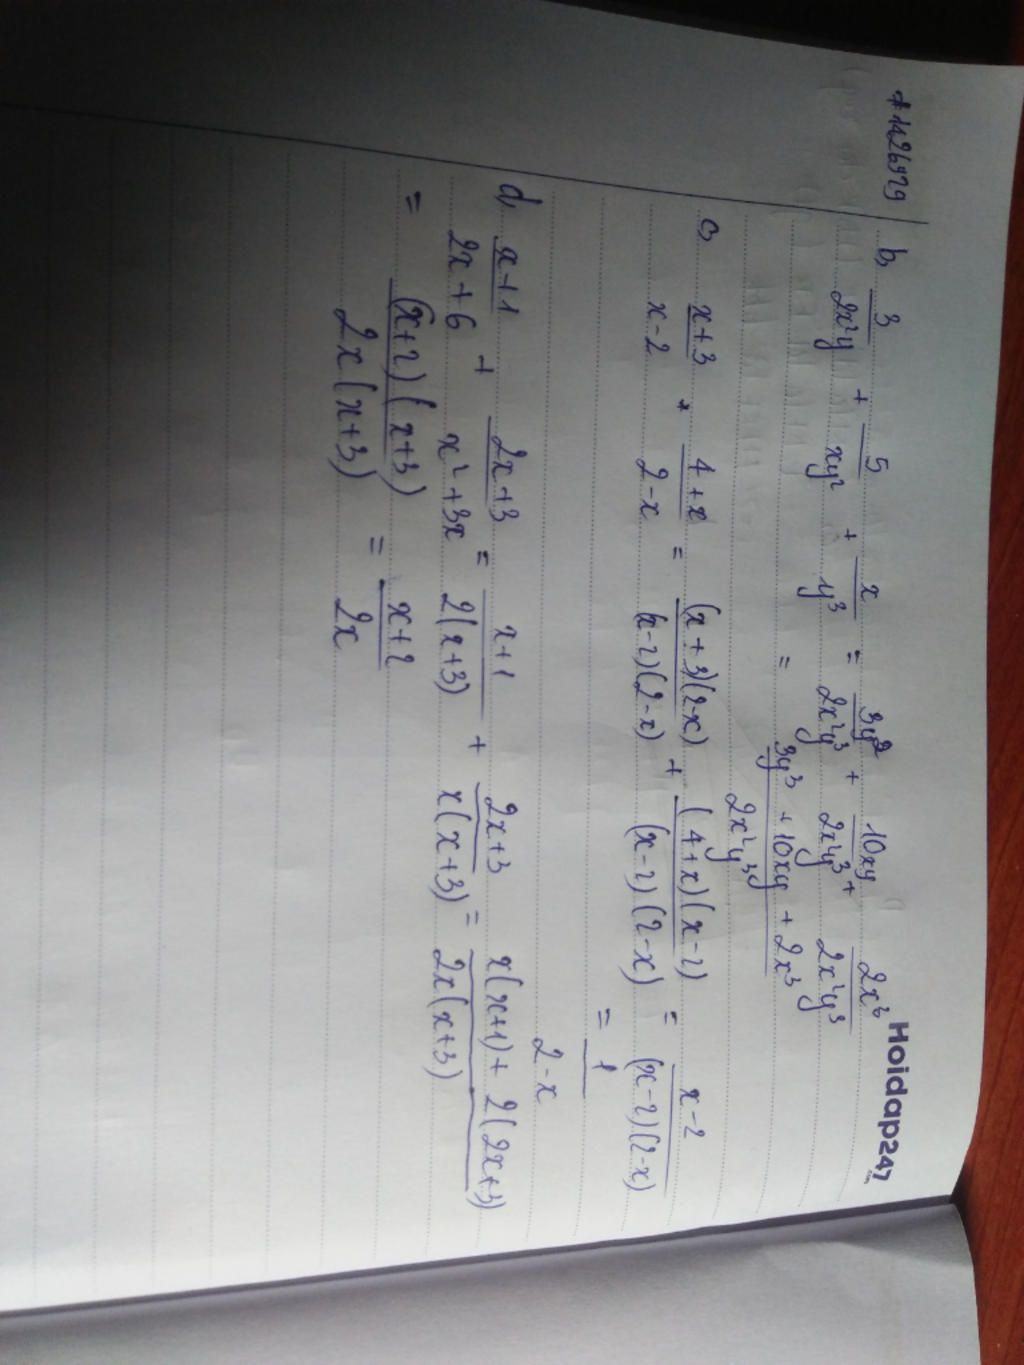 #1426929
Hoidap247
.com
b, 3/2x²y + 5/xy² + x/y³ = 3y²/2x²y³ + 10xy/2x²y³ + 2x³/2x²y³
= (3y³ + 10xy + 2x³)/2x²y³
c, (x+3)/(x-2) + (4+x)/(2-x) = (x+3)(2-x)/(x-2)(2-x) + (4+x)(x-2)/(x-2)(2-x) = (x-2)/(x-2)(2-x)
= 1/(2-x)
d, (x+1)/(2x+6) + (2x+3)/(x²+3x) = (x+1)/2(x+3) + (2x+3)/x(x+3) = (x(x+1) + 2(2x+3))/2x(x+3)
= (x+2)(x+3)/2x(x+3) = (x+2)/2x